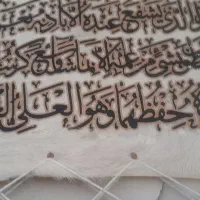 الَّذِي يَشْفَعُ عِنْدَهُ إِلَّا بِإِذْنِهِ
بِشَيْءٍ مِنْ عِلْمِهِ إِلَّا بِمَا شَاءَ وَسِعَ
حِفْظُهُمَا وَهُوَ الْعَلِيُّ